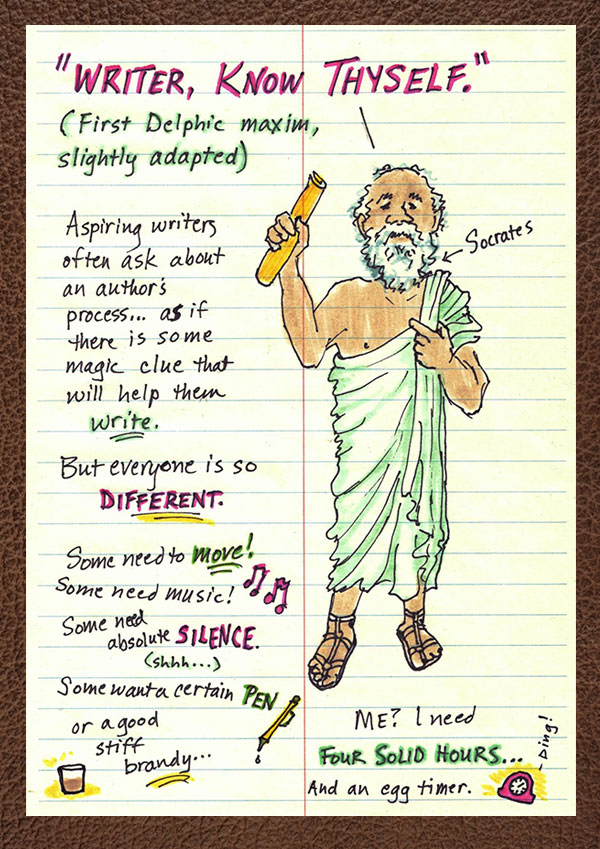 "WRITER, KNOW THYSELF."
(First Delphic maxim,
slightly adapted)
Socrates
Aspiring writers
often ask about
an author's
process... as if
there is some
magic clue that
will help them
write.
But everyone is so
DIFFERENT.
Some need to move!
Some need music!
Some need
absolute SILENCE.
(shhh...)
Some want a certain PEN
or a good
stiff
brandy...
ME? I need
FOUR SOLID HOURS...
And an egg timer.
Ding!